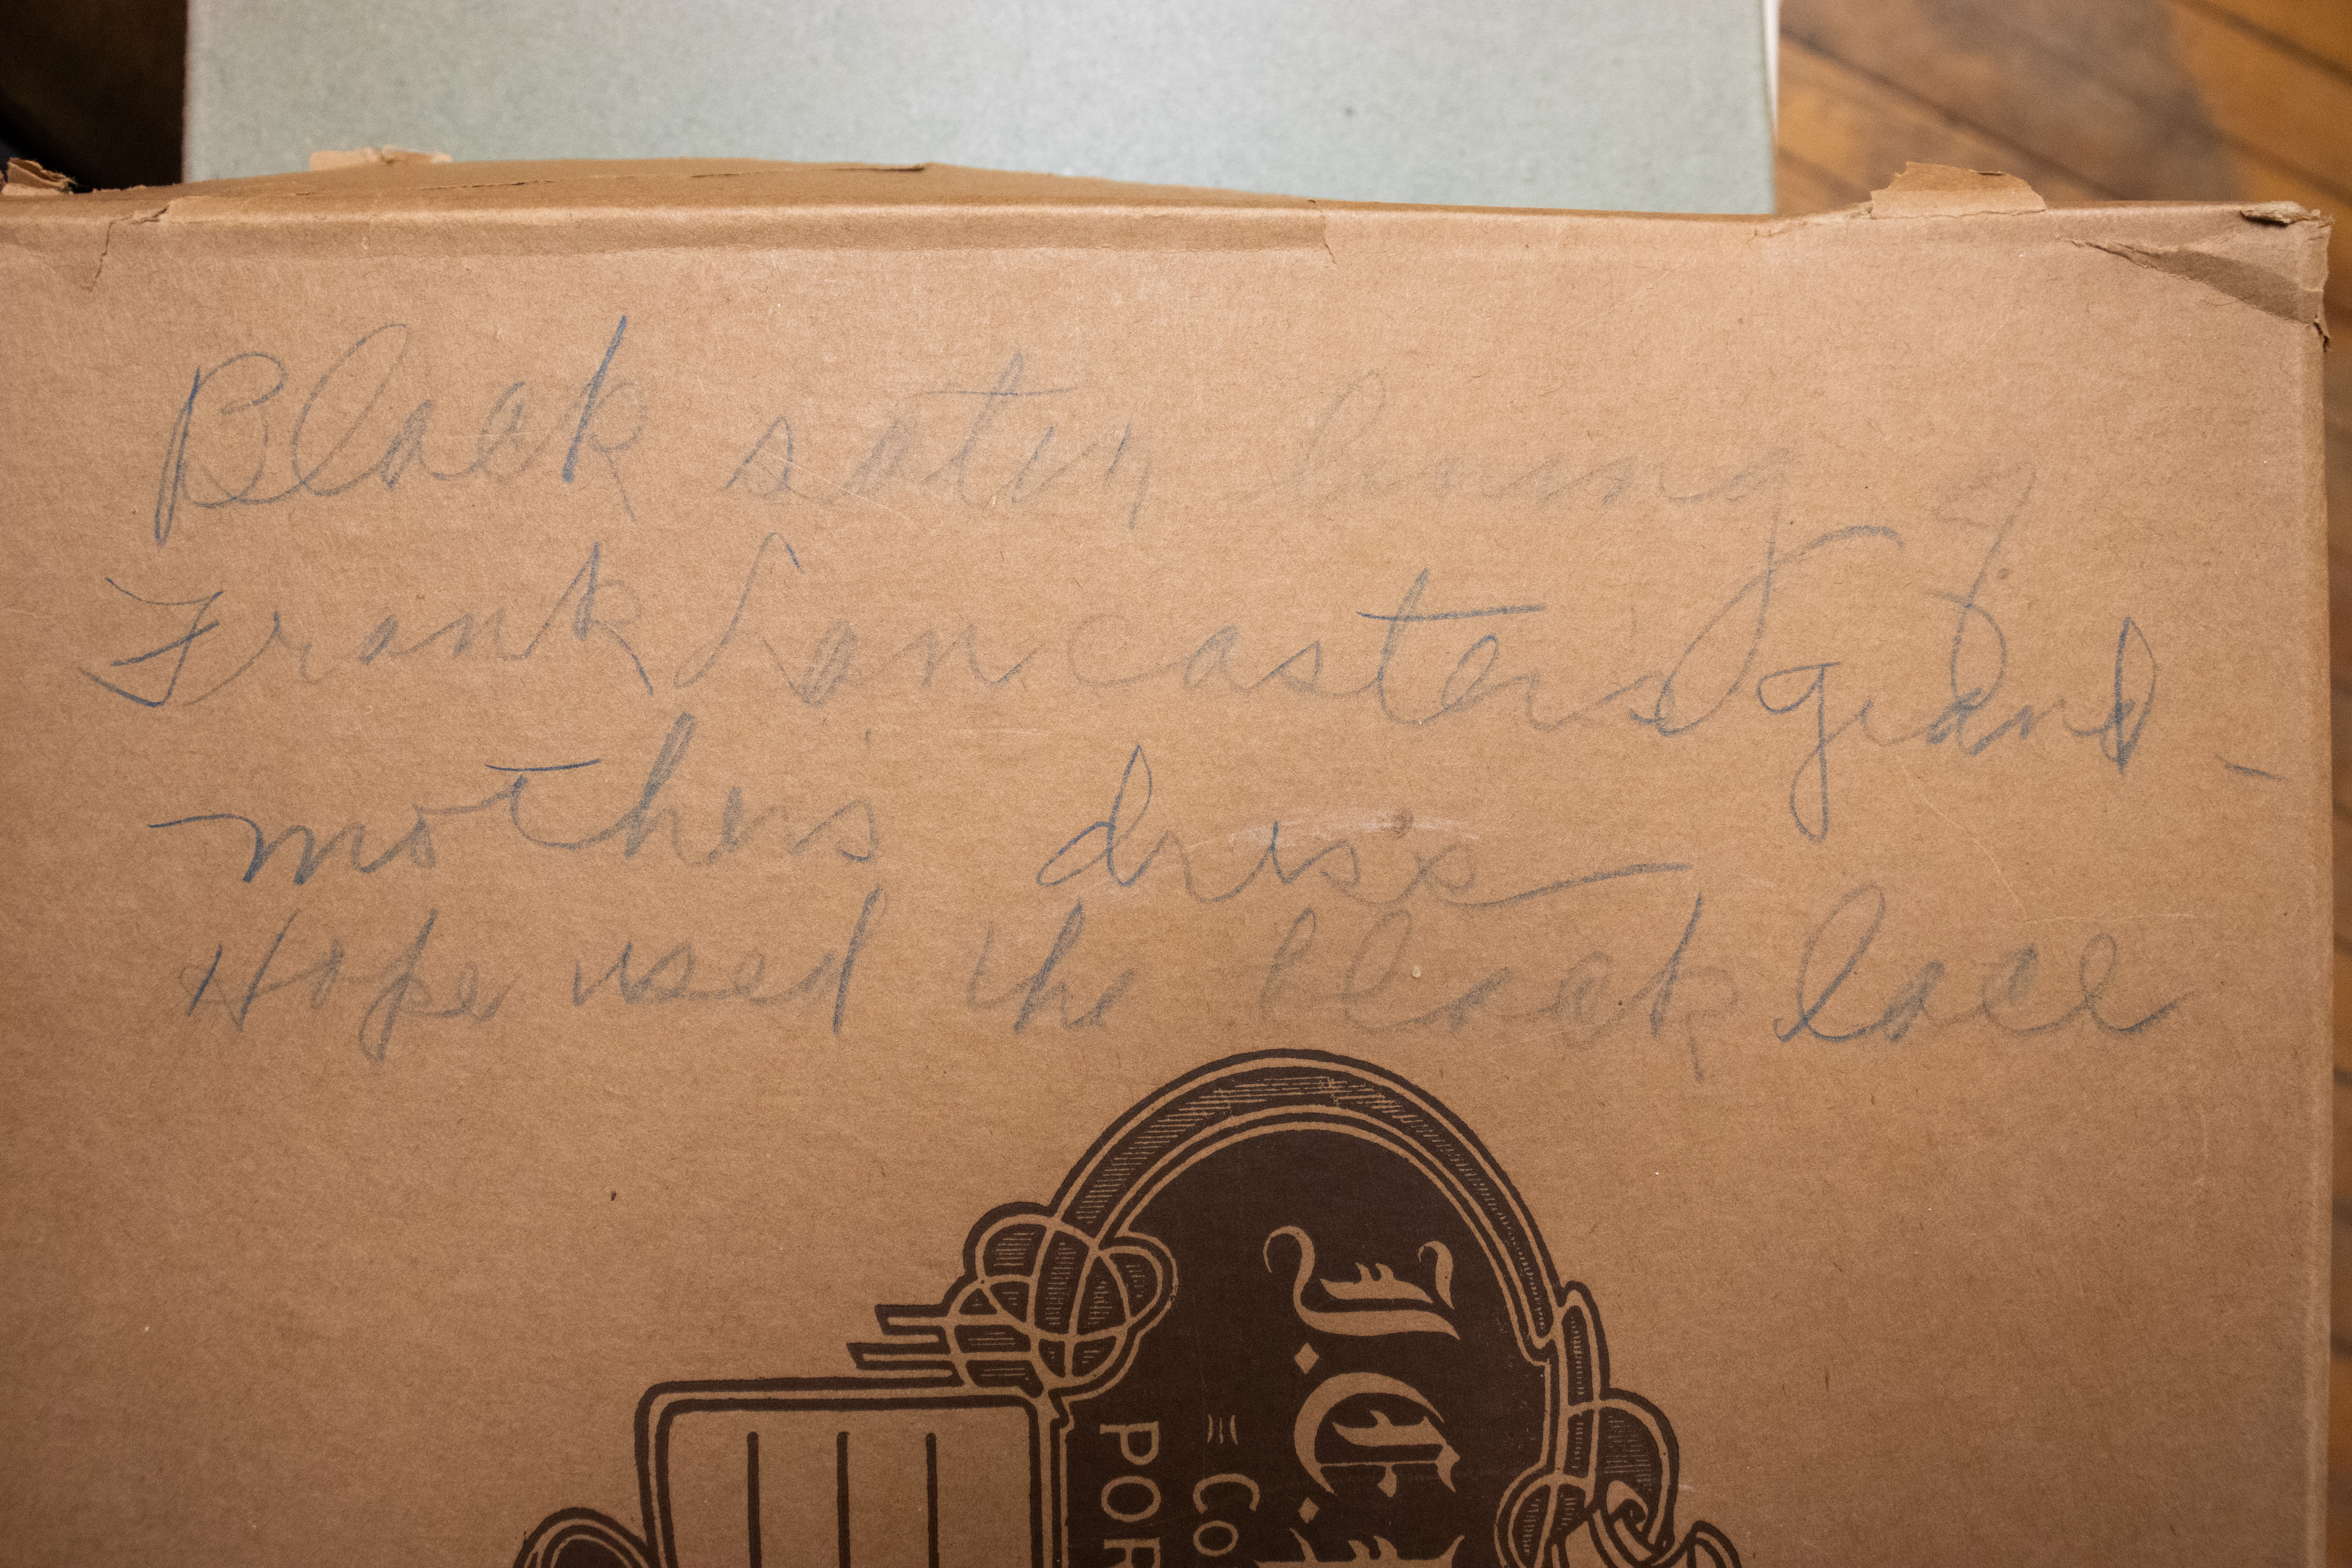 Black satin lining of
Frank Lancaster's grand-
mother's dress
Hope used the black lace
J.C.
Co
POR